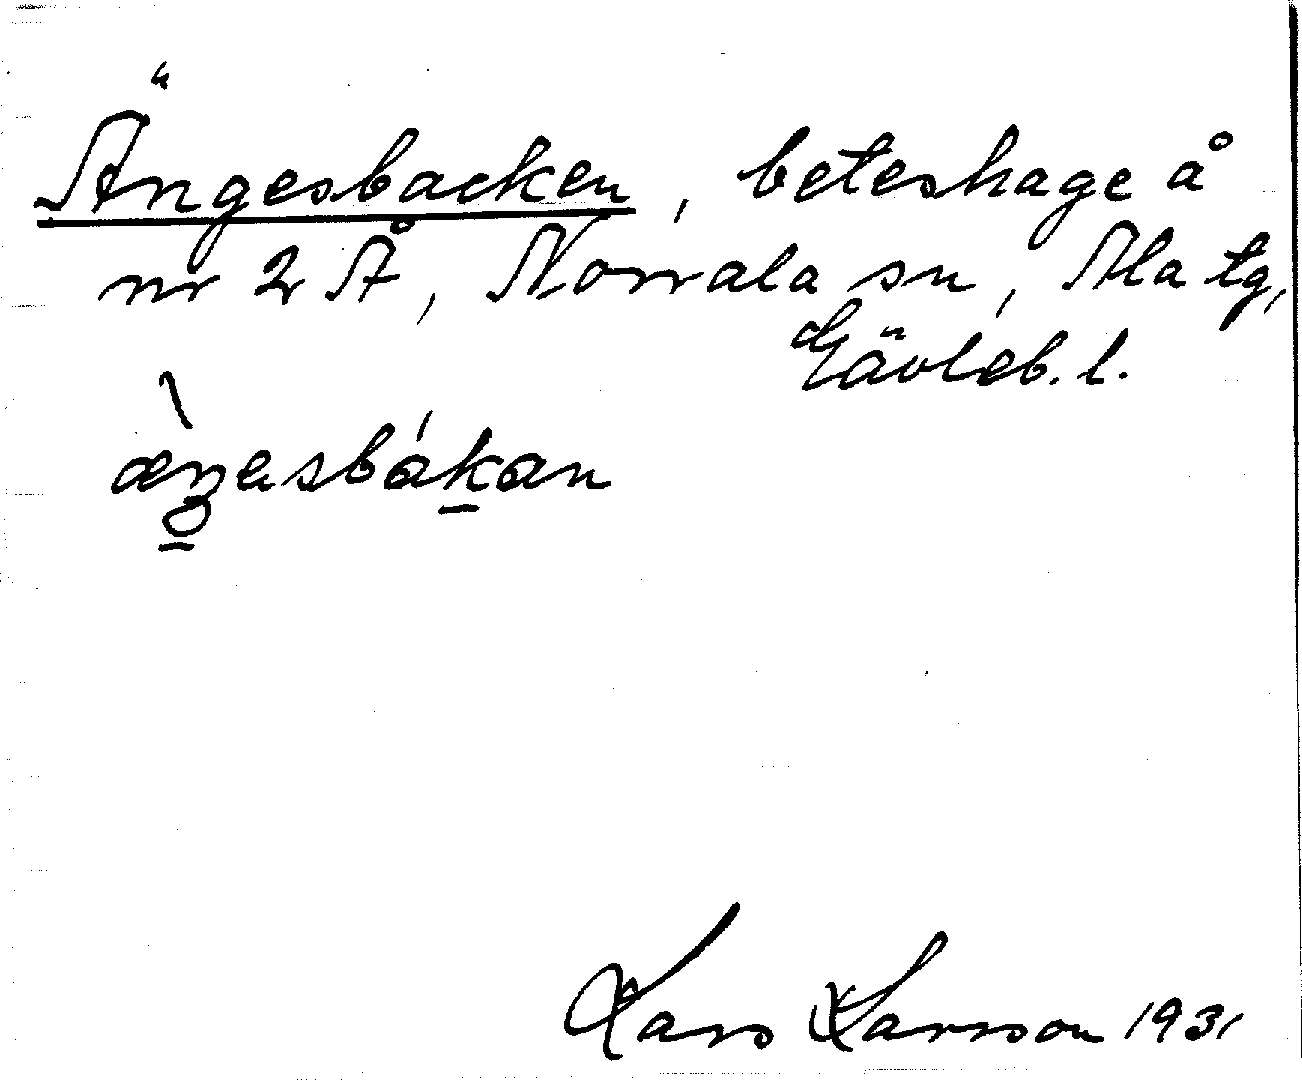 Ängesbacken, beteshage å
nr 2 Å, Norrala sn, Ala tg,
Gävleb. l.
Lars Larsson 1931